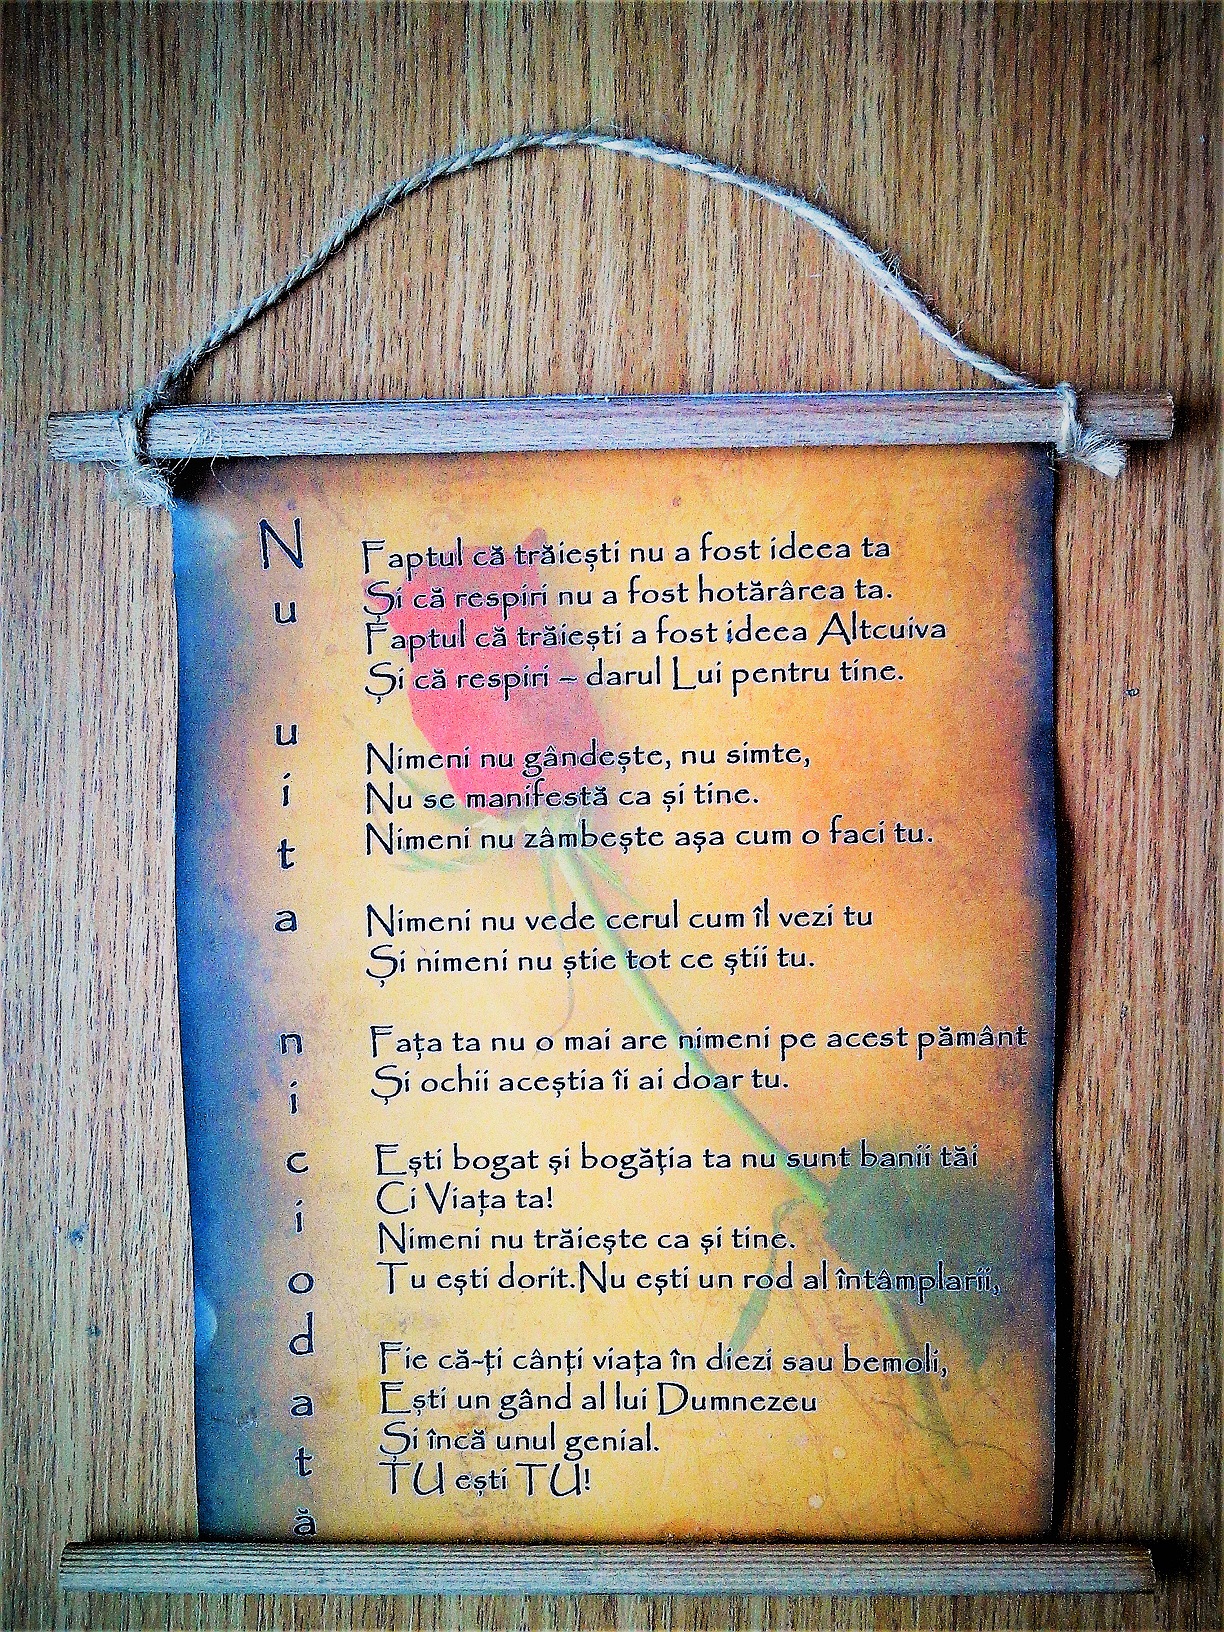 Nu uita niciodată
Faptul că trăiești nu a fost ideea ta
Și că respiri nu a fost hotărârea ta.
Faptul că trăiești a fost ideea Altcuiva
Și că respiri – darul Lui pentru tine.
Nimeni nu gândește, nu simte,
Nu se manifestă ca și tine.
Nimeni nu zâmbește așa cum o faci tu.
Nimeni nu vede cerul cum îl vezi tu
Și nimeni nu știe tot ce știi tu.
Fața ta nu o mai are nimeni pe acest pământ
Și ochii aceștia îi ai doar tu.
Ești bogat și bogăția ta nu sunt banii tăi
Ci Viața ta!
Nimeni nu trăiește ca și tine.
Tu ești dorit.Nu ești un rod al întâmplarii,
Fie că-ți cânți viața în diezi sau bemoli,
Ești un gând al lui Dumnezeu
Și încă unul genial.
TU ești TU!